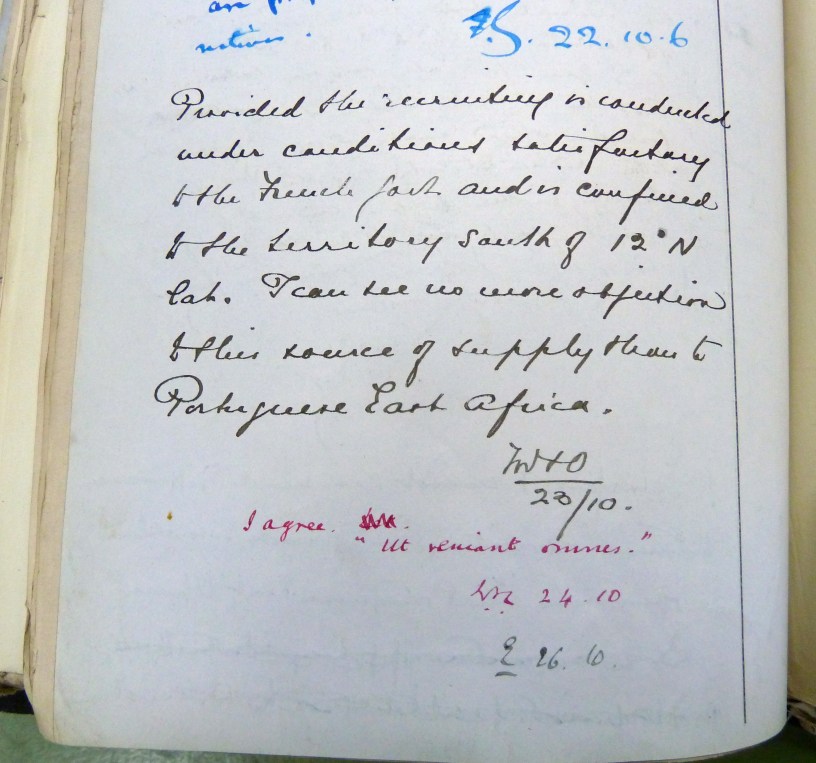 natives.
F.S. 22.10.6
Provided the recruiting is conducted
under conditions satisfactory
to the French Govt and is confined
to the territory South of 12° N
Lat. I can see no more objection
to this source of supply than to
Portuguese East Africa.
23/10.
I agree.
"Ut veniant omnes."
24.10
E 26.10.